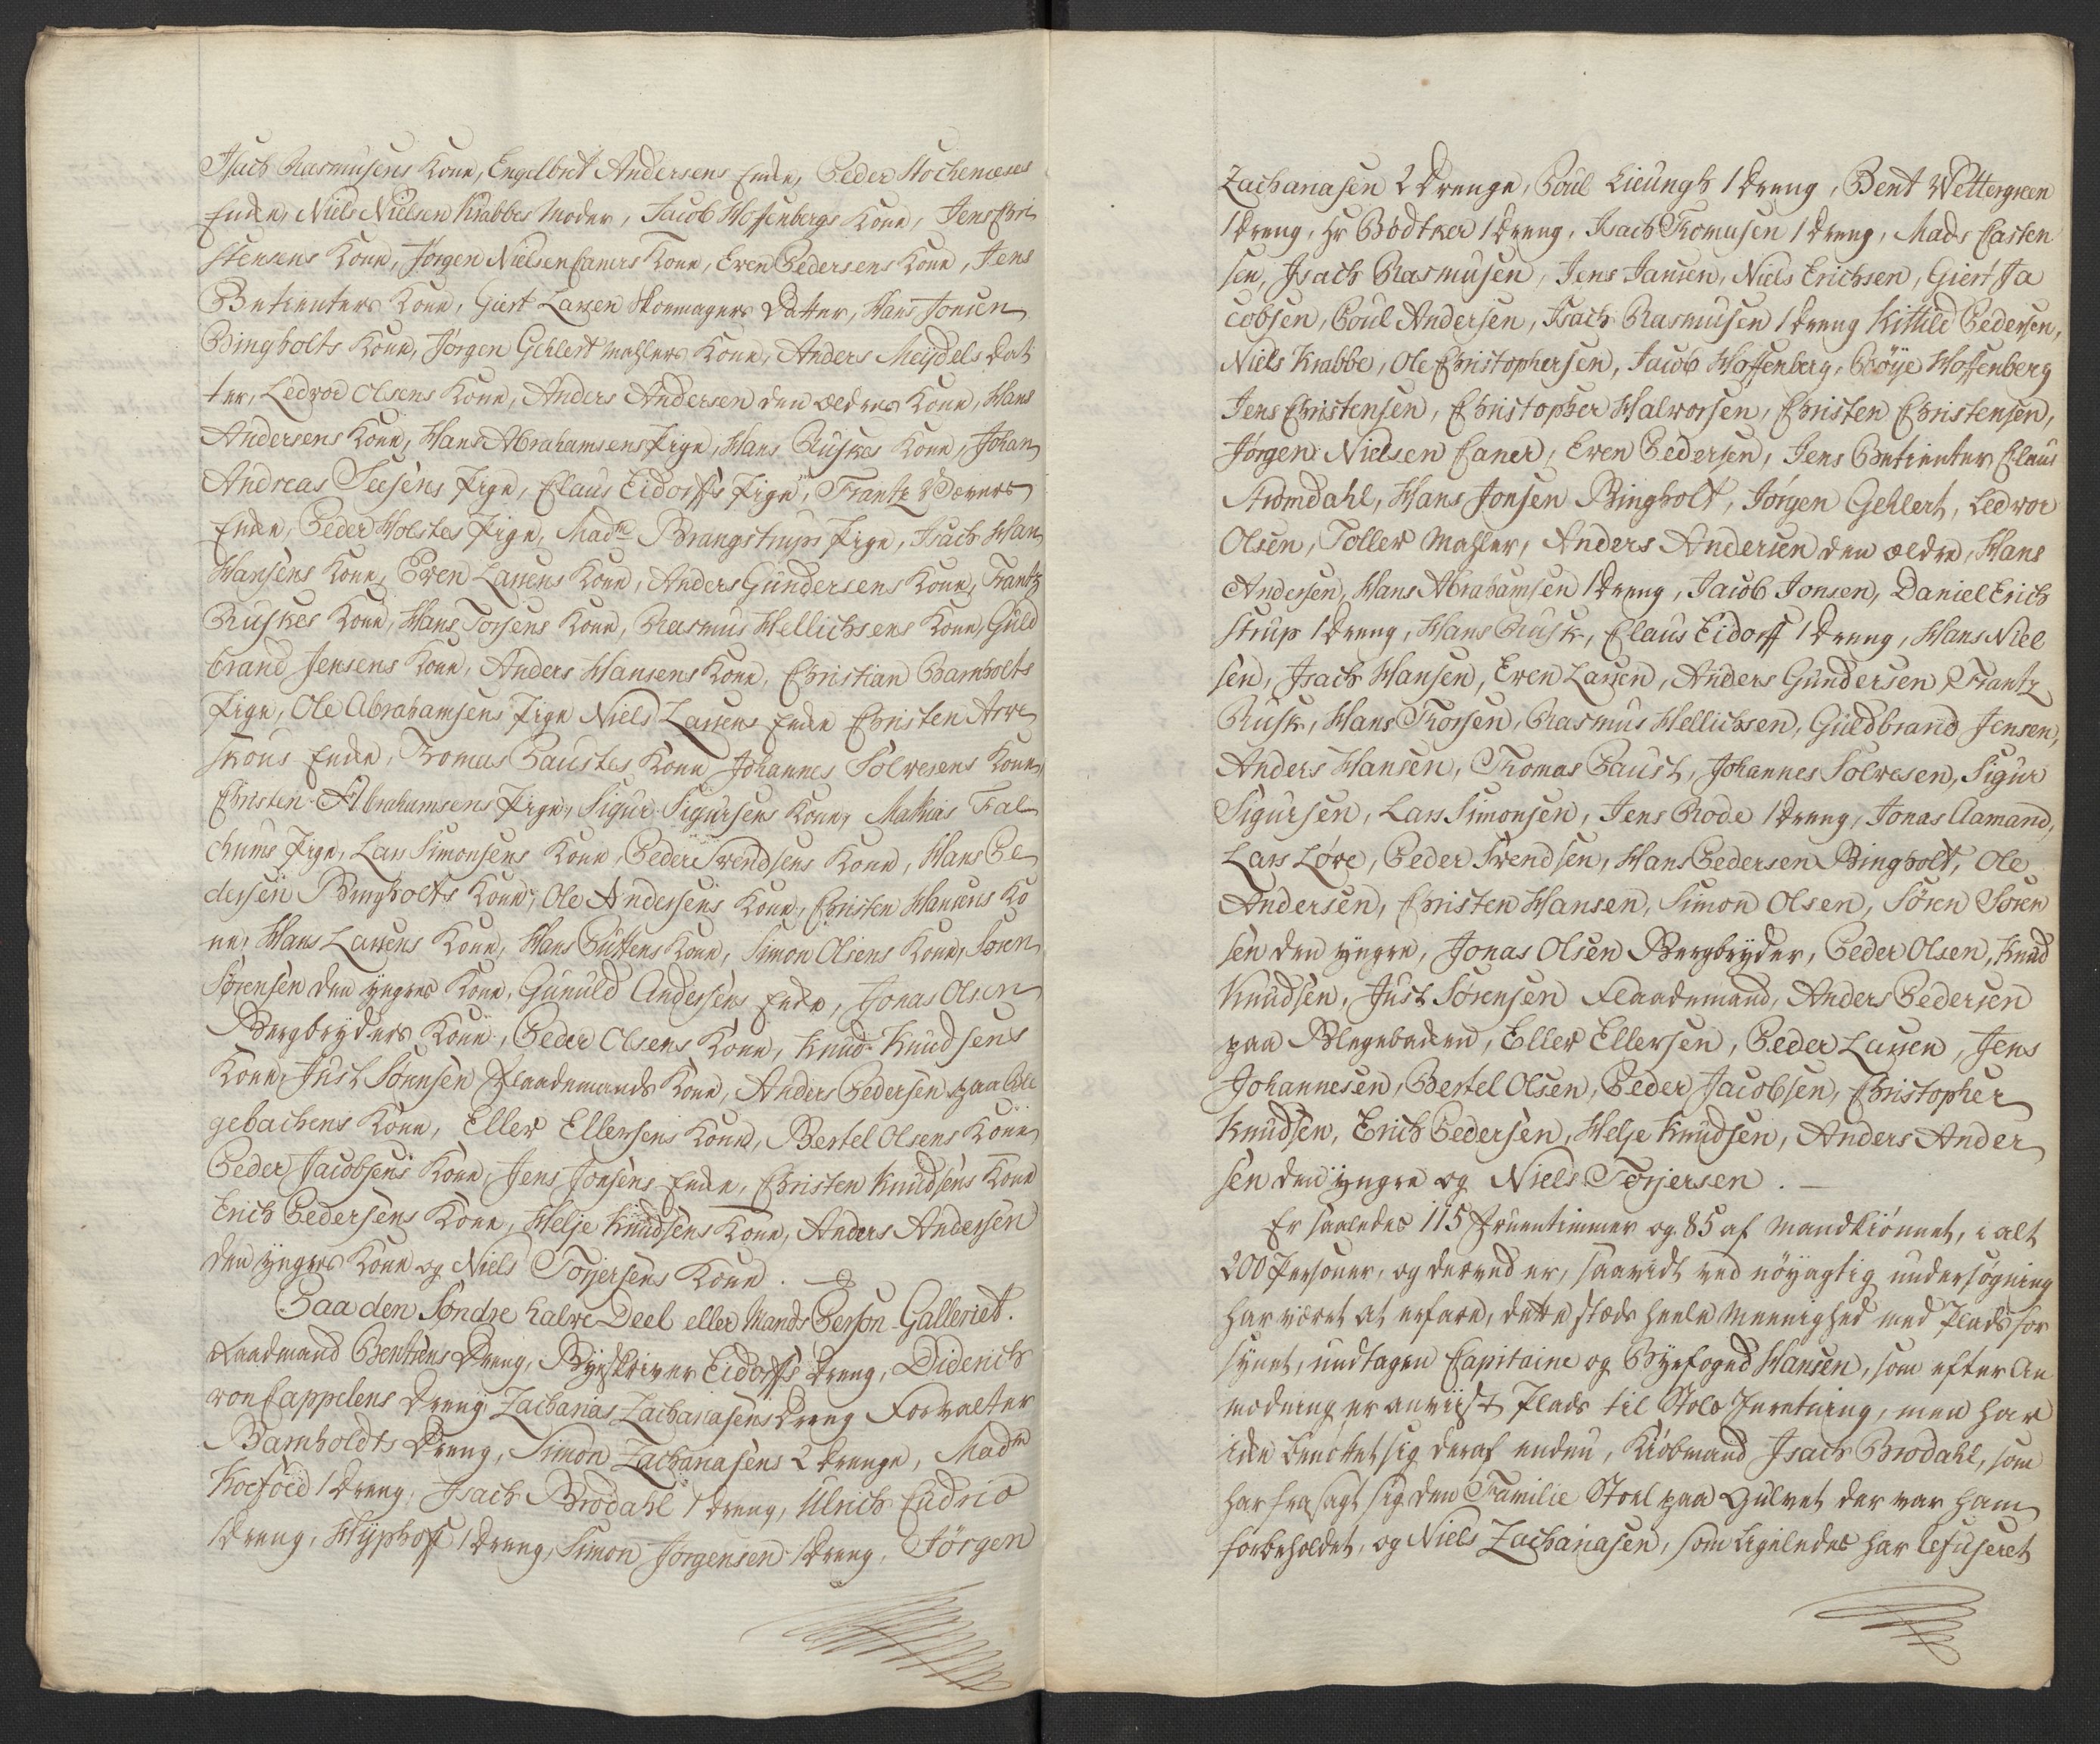 Isach Rasmusens Kone, Engelbret Andersens Enke, Peder Stochenæses
Enke, Niels Nielsen Krabbes Moder, Jacob Hoffenbergs Kone, Jens Chri
stensens Kone, Jørgen Nielsen Caners Kone, Even Pedersens Kone, Jens
Betienters Kone, Giert Larsen Skomagers Datter, Hans Jonsen
Bingholts Kone, Jørgen Gehlert Mahlers Kone, Anders Meydels Dat
ter, Ledvor Olsens Kone, Anders Andersen den ældres Kone, Hans
Andersens Kone, Hans Abrahamsens Pige, Hans Ruskes Kone, Johan
Andreas Seesens Pige, Claus Eidorffs Pige, Frantz Vævers
Enke, Peder Holstes Pige, Madme Brangstrups Pige, Isach Han
Hansens Kone, Even Larsens Kone, Anders Gundersens Kone, Frantz
Ruskes Kone, Hans Torsens Kone, Rasmus Hellichsens Kone, Guld
brand Jensens Kone, Anders Hansens Kone, Christian Barnholts
Pige, Ole Abrahamsens Pige Niels Larsens Enke Christen Arve
skous Enke, Tomas Paustes Kone Johannes Solvesens Kone,
Christen Abrahamsens Pige, Sigur Sigursens Kone, Mathias Fal
chums Pige, Lars Simonsens Kone, Peder Svendsens Kone, Hans Pe
dersen Bingholts Kone, Ole Andersens Kone, Christen Hansens Ko
ne, Hans Larsens Kone, Hans Puttens Kone, Simon Olsens Kone, Søren
Sørensen den yngres Kone, Gunuld Andersens Enke, Jonas Olsen
Bergbryders Kone, Peder Olsens Kone, Knud Knudsens
Kone, Just Sørensen Flaademands Kone, Anders Pedersen paa Ble
gebachens Kone, Eller Ellersens Kone, Bertel Olsens Kone
Peder Jacobsens Kone, Jens Jonsens Enke, Christen Knudsens Kone
Erich Pedersens Kone, Helje Knudsens Kone, Anders Andersen
den yngres Kone og Niels Torjersens Kone.
Paa den Søndre halve Deel eller Mands Person Galleriet.
Raadmand Bentzens Dreng, Byeskriver Eidorffs Dreng, Diderich
von Cappelens Dreng, Zacharias Zachariasens Dreng Forvalter
Barnholdts Dreng, Simon Zachariasens 2 Drenge, Madme
Koefoed 1 Dreng, Isach Brodahl 1 Dreng, Ulrich Cudrio
1 Dreng, Wyphoff 1 Dreng, Simon Jørgensen 1 Dreng, Jørgen
Zachariasen 2 Drenge, Poul Lieungh 1 Dreng, Bent Wettergreen
1 Dreng, Hr Bødtker 1 Dreng, Isach Tomasen 1 Dreng, Mads Casten
sen, Isach Rasmusen, Jens Jansen, Niels Erichsen, Giert Ja
cobsen, Poul Andersen, Isach Rasmusen 1 Dreng Kittild Pedersen,
Niels Krabbe, Ole Christophersen, Jacob Hoffenberg, Røye Hoffenberg
Jens Christensen, Christopher Halvorsen, Christen Christensen,
Jørgen Nielsen Caner, Even Pedersen, Jens Betienter Claus
Strømdahl, Hans Jonsen Bingholt, Jørgen Gehlert, Ledvor
Olsen, Toller Mahler, Anders Andersen den ældre, Hans
Andersen, Hans Abrahamsen 1 Dreng, Jacob Jonsen, Daniel Erich
strup 1 Dreng, Hans Rusk, Claus Eidorff 1 Dreng, Hans Niel
sen, Isach Hansen, Even Larsen, Anders Gundersen, Frantz
Rusk, Hans Thorsen, Rasmus Hellichsen, Guldbrand Jensen,
Anders Hansen, Thomas Paust, Johannes Solvesen, Sigur
Sigursen, Lars Simonsen, Jens Rode 1 Dreng, Jonas Aamand,
Lars Løve, Peder Svendsen, Hans Pedersen Bingholt, Ole
Andersen, Christen Hansen, Simon Olsen, Søren Søren
sen den yngre, Jonas Olsen Bergbryder, Peder Olsen, Knud
Knudsen, Just Sørensen Flaademand, Anders Pedersen
paa Blegebaken, Eller Ellersen, Peder Larsen, Jens
Johannesen, Bertel Olsen, Peder Jacobsen, Christopher
Knudsen, Erich Pedersen, Helje Knudsen, Anders Ander
sen den yngre og Niels Torjersen.
Er saaledes 115 Fruentimmer og 85 af Mandkiønnet, i alt
200 Personer, og derved er, saavidt ved nøyagtig undersøgning
har været at erfare, dette stæds heele Meenighed med Plads for
synet, undtagen Capitaine og Byefoged Hansen, som efter An
modning er anviist Plads til Stole Inretning, men har
ikke benøttet sig deraf endnu, Kiøbmand Isach Brodahl, som
har frasagt sig den Familie Stoel paa Gulvet der var ham
forbeholdet, og Niels Zachariasen, som ligeledes har refuseret